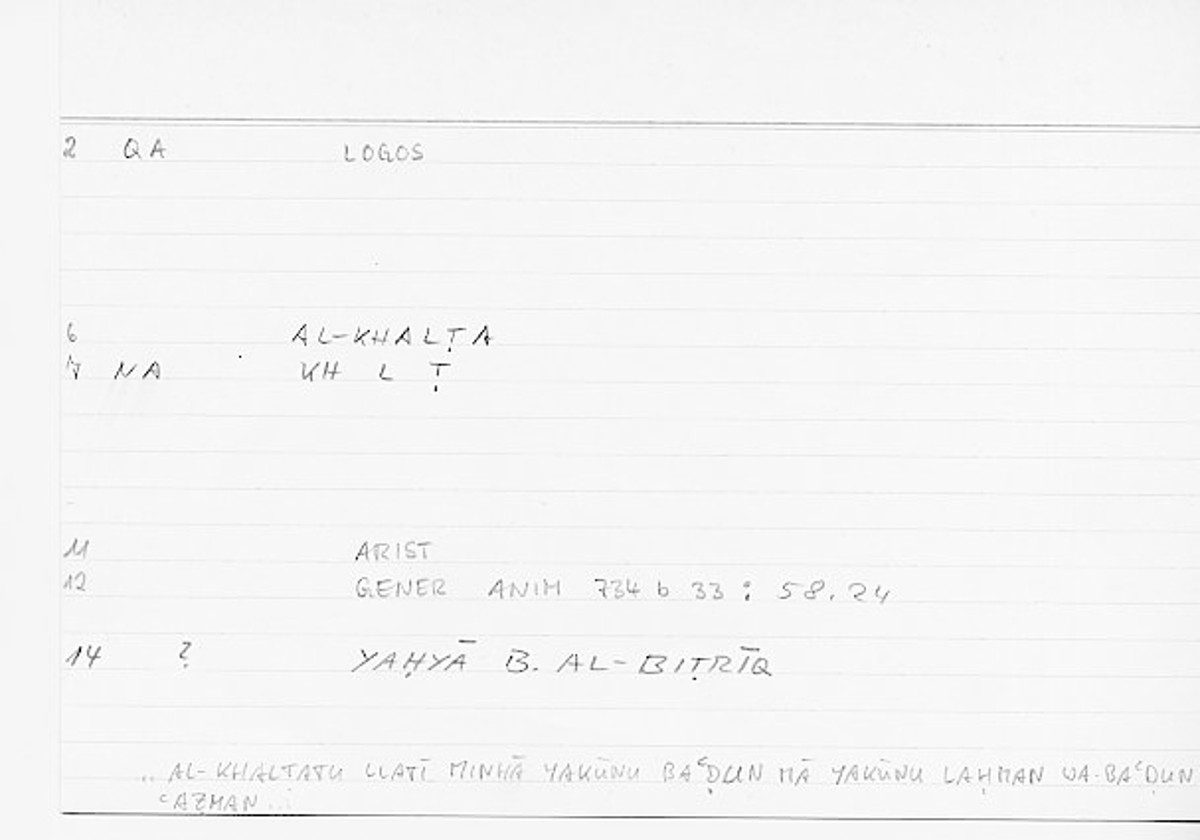 2 QA LOGOS
6 AL-KHALṬA
7 NA KH L Ṭ
11 ARIST
12 GENER ANIM 734 b 33 : 58.24
14 ? YAḤYĀ B. AL-BIṬRĪQ
.. AL-KHALTATU LLATĪ MINHĀ YAKŪNU BAʿḌUN MĀ YAKŪNU LAḤMAN WA-BAʿḌUN
ʿAẒMAN ...